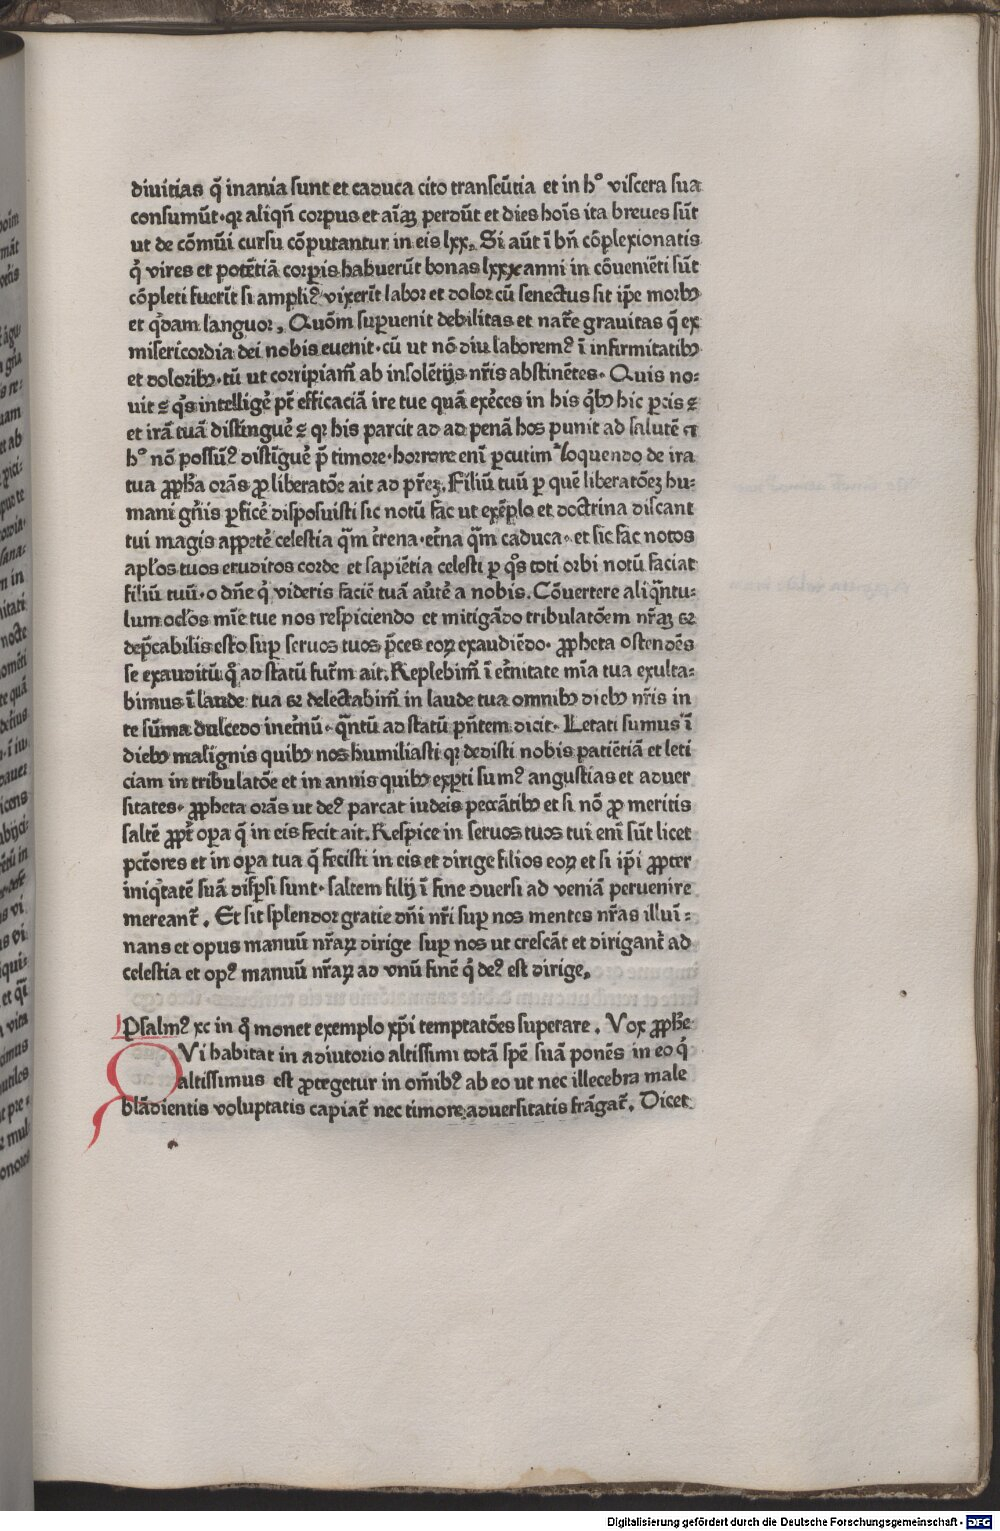 diuitias q̄ inania sunt et caduca cito transeūtia et in hº viscera sua
consumūt·qꝛ aliqñ corpus et aīaʒ perdūt et dies hoīs ita breues sūt
ut de cōmūi cursu cōputantur in eis lxx. Si aūt ī bñ cōplexionatis
q̇ vires et potētiā corpis habuerūt bonas lxxx anni in cōueniēti sūt
cōpleti fuerīt si ampliꝰ vixerīt labor et dolor cū senectus sit ip̄e morbꝰ
et q̇dam languor. Quōm supuenit debilitas et nat̄e grauitas q̄ ex
misericordia dei nobis euenit·cū ut nō diu laboremꝰ ī infirmitatibꝰ
et doloribꝰ·tū ut corripiam̄ ab insolētijs nr̄is abstinētes· Quis no⸗
uit ⁊ q̇s intellige᷑ pt̄ efficaciā ire tue quā exe᷑ces in his q̇bꝰ hic ꝑcis ⁊
et irā tuā distingue᷑ ⁊ qꝛ his parcit ad ad penā hos punit ad salutē ⁊
hº nō possūꝰ distīgue᷑ p̄ timore·horrore enī ꝑcutim̄ loquendo de ira
tua ꝓpha orās ꝓ liberatōe ait ad pr̄eʒ. Filiū tuū ꝑ quē liberatōeʒ hu⸗
mani gn̄is ꝑfice᷑ disposuisti sic notū fac ut exēplo et doctrina discant
tui magis appete᷑ celestia q̄m t᷑rena·et᷑na q̄m caduca· et sic fac notos
apl̄os tuos eruditos corde et sapiētia celesti ꝑ q̇s toti orbi notū faciat
filiū tuū·o dn̄e q̇ videris faciē tuā au᷑te᷑ a nobis. Cōuertere aliq̄ntu⸗
lum oc̄los mīe tue nos respiciendo et mitigādo tribulatōem nr̄aʒ ⁊
dep̄cabilis esto suꝑ seruos tuos p̄ces eoꝝ exaudiēdo· ꝓpheta ostendēs
se exauditū q̇ ad statū futr̄m ait. Replebim̄ ī et᷑nitate mīa tua exulta⸗
bimus ī laude tua ⁊ delectabim̄ in laude tua omnibꝰ diebꝰ nr̄is in
te sūma dulcedo inet᷑nū· q̄ntū ad statū pn̄tem dicit· Letati sumus ī
diebꝰ malignis quibꝰ nos humiliasti qꝛ dedisti nobis patiētiā et leti
ciam in tribulatōe et in annis quibꝰ exꝑti sumꝰ angustias et aduer
sitates· ꝓpheta orās ut deꝰ parcat iudeis peccātibꝰ et si nō ꝓ meritis
saltē ꝓpt᷑ oꝑa q̄ in eis fecit ait. Respice in seruos tuos tui enī sūt licet
pctōres et in oꝑa tua q̄ fecisti in eis et dirige filios eoꝝ et si ip̄i ꝓpter
iniq̇tatē suā disꝑsi sunt· saltem filij ī fine ꝯuersi ad veniā peruenire
mereant᷑. Et sit splendor gratie dn̄i nr̄i suꝑ nos mentes nr̄as illuī⸗
nans et opus manuū nr̄aꝝ dirige suꝑ nos ut crescāt et dirigant᷑ ad
celestia et opꝰ manuū nr̄aꝝ ad vnū finē q̇ deꝰ est dirige.
Psalmꝰ xc in q̇ monet exemplo xp̄i temptatōes superare. Vox ꝓphe
QVi habitat in adiutorio altissimi totā spē suā ponēs in eo q̇
altissimus est ꝓtegetur in om̄ibꝰ ab eo ut nec illecebra male
blādientis voluptatis capiat᷑ nec timore aduersitatis frāgat᷑. Dicet
Digitalisierung gefördert durch die Deutsche Forschungsgemeinschaft - DFG